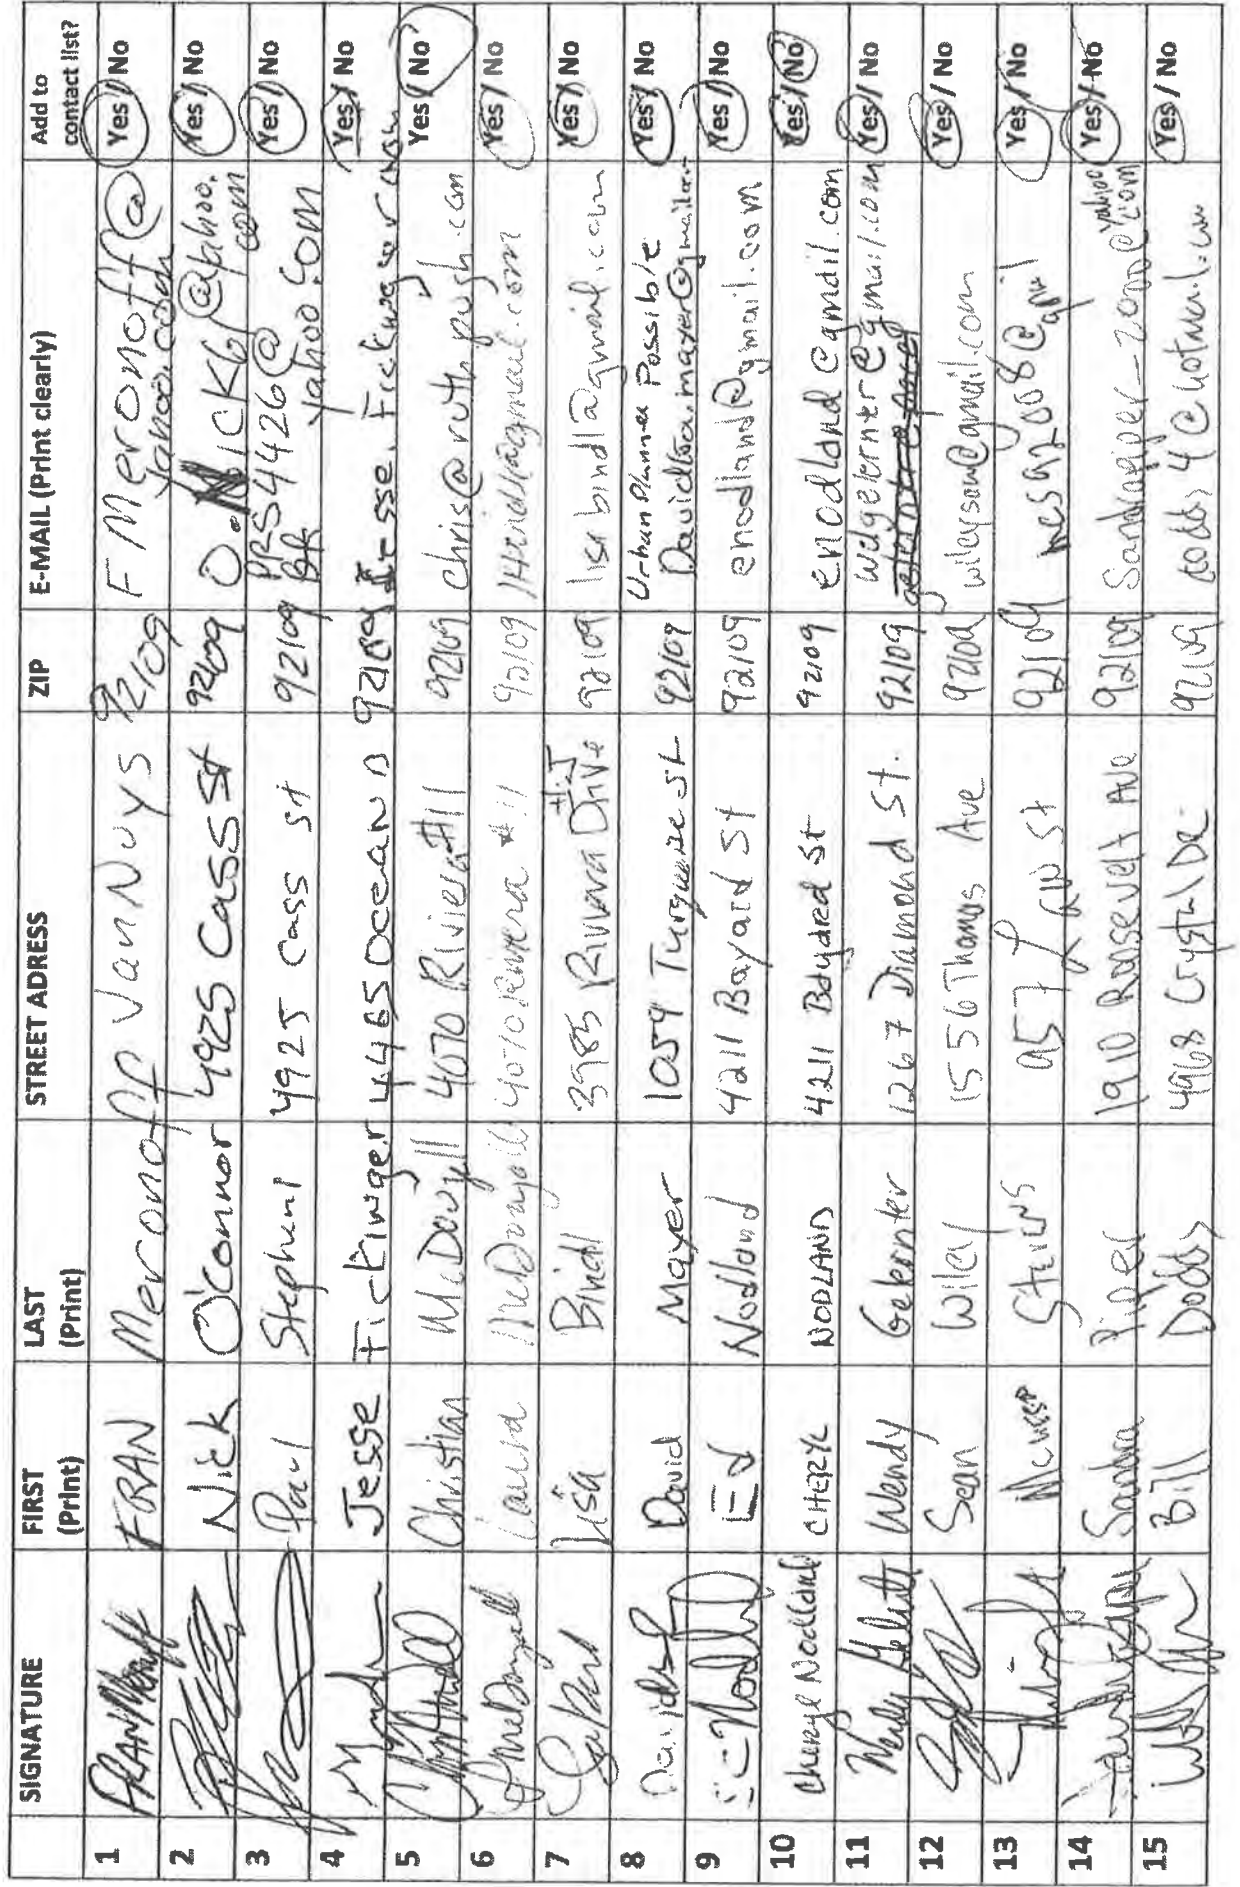 SIGNATURE FIRST (Print) LAST (Print) STREET ADRESS ZIP E-MAIL (Print clearly) Add to contact list?
1 FRAN Meronoff VanNuys 92109 FMeronoff@yahoo.com Yes / No
2 Nick O'Connor 4925 Cass St 92109 @yahoo.com Yes / No
3 Paul Stephens 4925 Cass St 92109 PRS4426@yahoo.com Yes / No
4 Jesse Fickinger 4465 Ocean B 92109 Yes / No
5 Christian McDougall 4070 Riviera #11 92109 chris@ruthpugh.com Yes / No
6 Laura McDougall 4070 Riviera #11 92109 Yes / No
7 Lisa Bindl 3985 Riviera Drive 92109 lisabindl@gmail.com Yes / No
8 David Mayer 1059 Turquoise St 92109 Urban Planner Possible
Davidtoa.mayer@gmail.com Yes / No
9 Ed Nodland 4211 Bayard St 92109 enodland@gmail.com Yes / No
10 Cheryl Nodland CHERYL NODLAND 4211 Bayard St 92109 enodland@gmail.com Yes / No
11 Wendy Gelernter 1267 Diamond St. 92109 wdgelernter@gmail.com Yes / No
12 Sean Wiley 1556 Thomas Ave 92109 wileysean@gmail.com Yes / No
13 Stevens 957 Law St 92109 Yes / No
14 Sandra Piper 1910 Roosevelt Ave 92109 Sandrapiper_2000@yahoo.com Yes / No
15 Bill Dodds 4968 Crystal Dr. 92109 dodds4@hotmail.com Yes / No